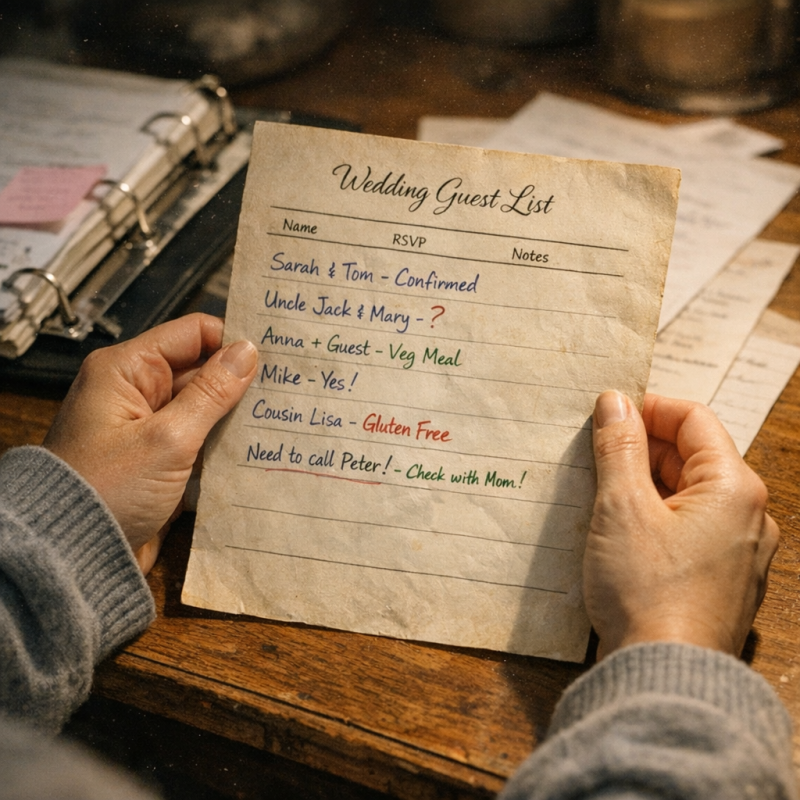 Wedding Guest List
Name RSVP Notes
Sarah & Tom - Confirmed
Uncle Jack & Mary - ?
Anna + Guest - Veg Meal
Mike - Yes!
Cousin Lisa - Gluten Free
Need to call Peter! - Check with Mom!